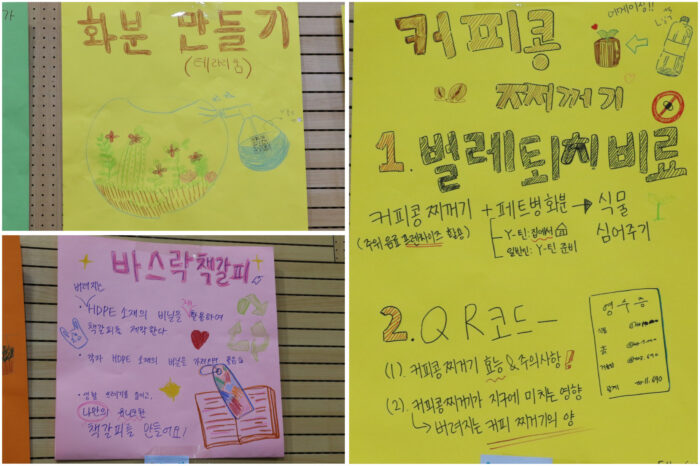 화분 만들기
(테라리움)
바스락 책갈피
버려지는
• HDPE 소재의 비닐을 활용하여
책갈피를 제작한다
• 각자 HDPE 소재의 비닐을 가져오면 좋음
• 생활 쓰레기를 줄이고,
나만의 유니크한
책갈피를 만들어요!
커피콩
찌꺼기
1. 벌레퇴치비료
커피콩 찌꺼기 + 페트병 화분 → 식물
심어주기
(주위 음료 프랜차이즈 활용)
Y-틴: 집에서
일반인: Y-틴 준비
2. QR코드ー
(1). 커피콩찌꺼기 효능 & 주의사항!
(2). 커피콩찌꺼기가 지구에 미치는 영향
↳ 버려지는 커피 찌꺼기의 양
영수증